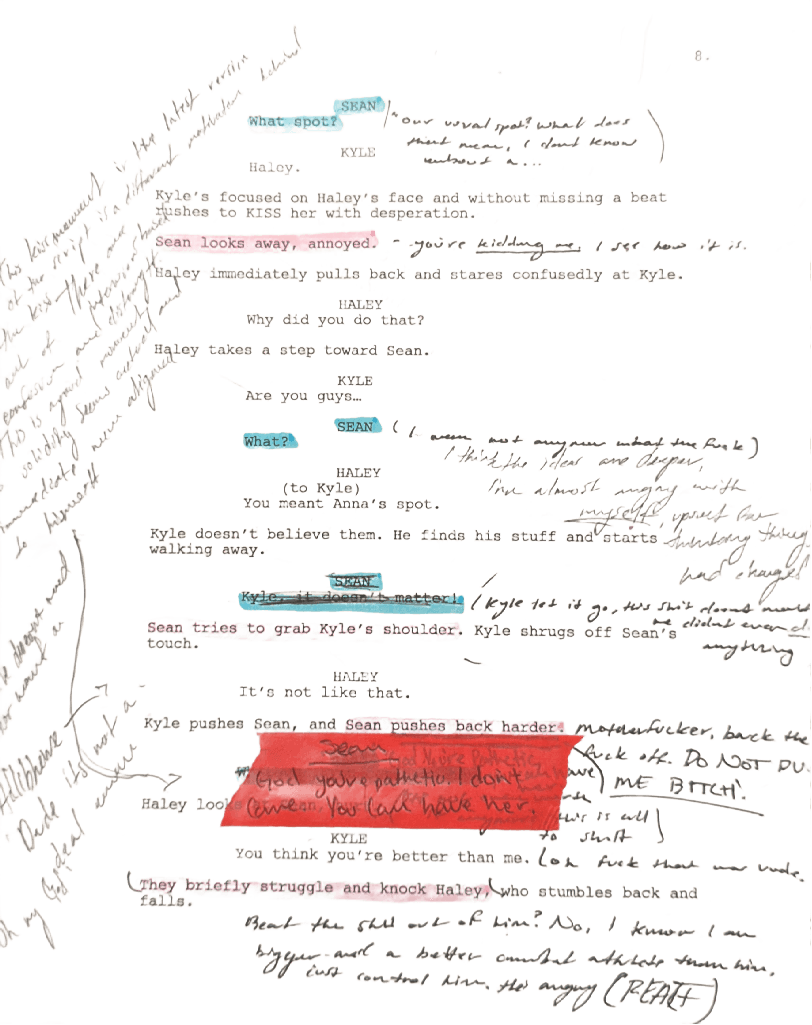 8.
SEAN
What spot?
"our usual spot? what does
that mean, I don't know
about a...
KYLE
Haley.
Kyle's focused on Haley's face and without missing a beat
rushes to KISS her with desperation.
Sean looks away, annoyed. - you're kidding me, I see how it is.
Haley immediately pulls back and stares confusedly at Kyle.
HALEY
Why did you do that?
Haley takes a step toward Sean.
KYLE
Are you guys…
SEAN
What?
(I mean not anymore what the fuck)
I think the ideas are deeper,
I'm almost angry with
myself, upset for
thinking things
had changed
HALEY
(to Kyle)
You meant Anna's spot.
Kyle doesn't believe them. He finds his stuff and starts
walking away.
SEAN
Kyle, it doesn't matter!
(Kyle let it go, this shit doesn't matter
we didn't even do
anything
Sean tries to grab Kyle's shoulder. Kyle shrugs off Sean's
touch.
HALEY
It's not like that.
Kyle pushes Sean, and Sean pushes back harder.
motherfucker, back the
fuck off. DO NOT
ME BITCH!
Sean
God you're pathetic. I don't
care. You can have her.
Haley
this is all
to shit
KYLE
You think you're better than me. (oh fuck that was rude.
(They briefly struggle and knock Haley, who stumbles back and
falls.
Beat the shit out of him? No, I know I am
bigger and a better combat athlete than him,
just control him. He's angry (REACT)
This kiss moment is the latest version
of the script is a different motivation behind
the kiss - There once
out of
confusion and
This is a good moment
solidify seems
immediate
to himself
Dude its not a
deal anymore
Oh my God,